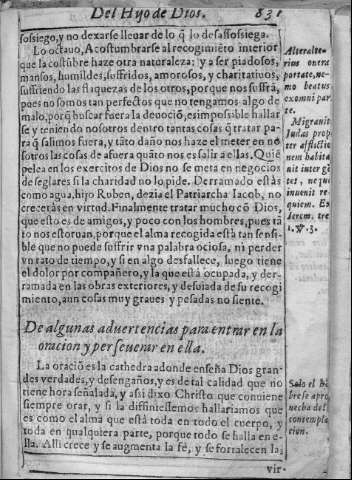 Del Hyo de Dios. 831
sossiego, y no dexarse lleuar de lo q̃ lo desassossiega.
Lo octauo, Acostumbrarse al recogimiẽto interior
que la costũbre haze otra naturaleza; y a ser piadosos,
mansos, humildes, sufridos, amorosos, y charitatiuos,
sufriendo las flaquezas de los otros, porque nos sufrã,
pues no somos tan perfectos que no tengamos algo de
malo, porq̃ buscar fuera la deuociõ, es impossible hallar
se y teniendo nosotros dentro tantas cosas q̃ tratar pa-
ra q̃ salimos fuera, y tãto daño nos haze el meter en no
sotros las cosas de afuera quãto nos es salir a ellas. Quiẽ
pelea en los exercitos de Dios no se meta en negocios
de seglares si la charidad no lo pide. Derramado estàs
como agua, hijo Ruben, dezia el Patriarcha Iacob, no
creceràs en virtud. Finalmente tratar mucho cõ Dios,
que estò es de amigos, y poco con los hombres, pues tã
to nos estoruan, porque el alma recogida està tan sensi
ble que no puede suffrir vna palabra ociosa, ni perder
vn rato de tiempo, y si en algo desfallece, luego tiene
el dolor por compañero, y la que està ocupada, y der-
ramada en las obras exteriores, y desuiada de su recogi
miento, aun cosas muy graues y pesadas no siente.
Alteralte-
rius onera
portate, ne-
mo beatus
exomni par
te.
Migranit
Iudas prop
ter afflictio
nem habita
uit inter gẽ
tes, nequè
inuenit re
quiem. Ex
Ierem. tre
1. v. 3.
De algunas aduertencias para entrar en la
oracion y perseuerar en ella.
La oraciõ es la cathedra adonde enseña Dios gran-
des verdades, y desengaños, y es de tal calidad que no
tiene hora señalada, y assi dixo Christo que conuiene
siempre orar, y si la diffiniessemos hallariamos que
es como el alma que està toda en todo el cuerpo, y
toda en qualquiera parte, porque todo se halla en e-
lla. Alli crece y se augmenta la fè, y se fortalecen las
Solo el hõ
bre se apro
uecha del
contempla
cion.
vir-